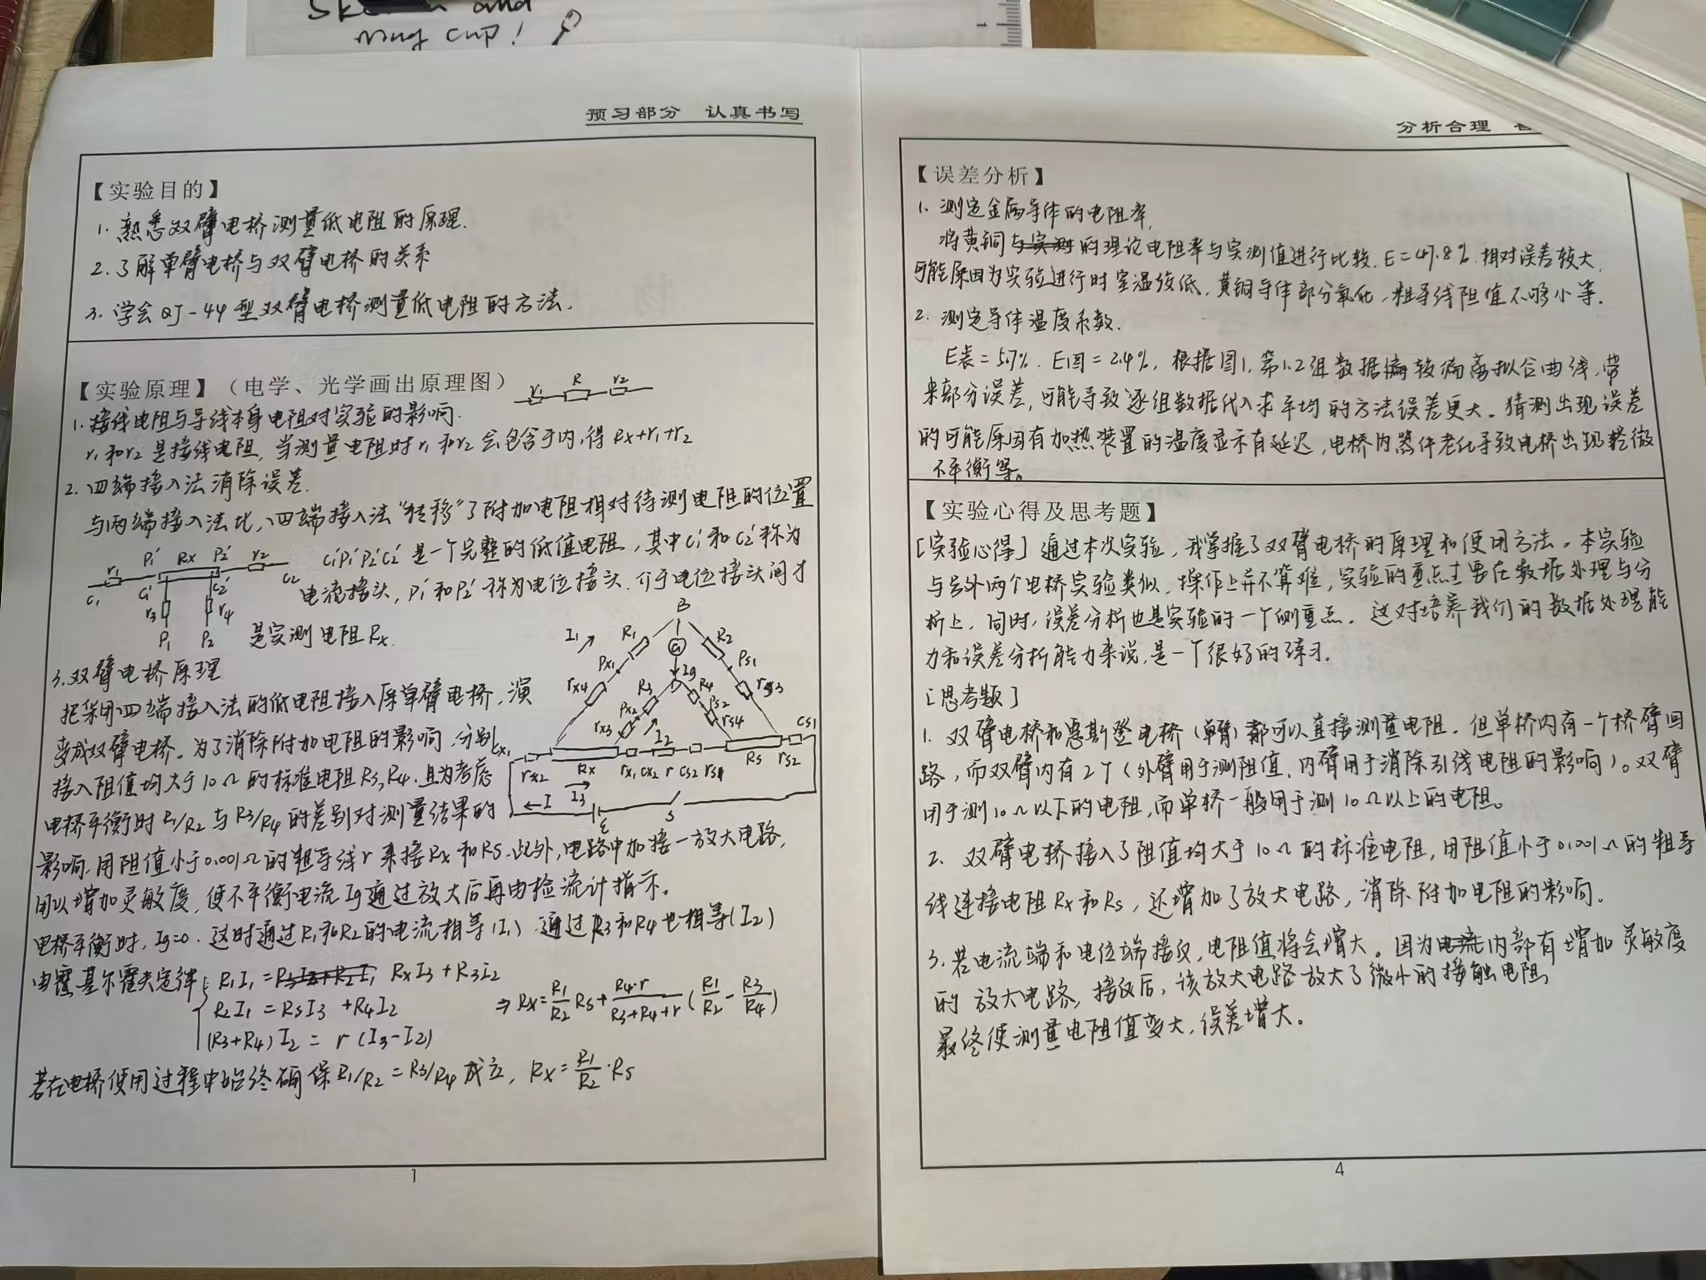 and
mug cup!
预习部分 认真书写
【实验目的】
1. 熟悉双臂电桥测量低电阻的原理.
2. 了解单臂电桥与双臂电桥的关系
3. 学会QJ-44型双臂电桥测量低电阻的方法.
【实验原理】（电学、光学画出原理图）
r1 R r2
1. 接线电阻与导线本身电阻对实验的影响.
r1和r2是接线电阻，当测量电阻时r1和r2会包含于内，得Rx+r1+r2
2. 四端接入法消除误差.
与两端接入法比，四端接入法“转移”了附加电阻相对待测电阻的位置
r1 P1' Rx P2' r2
C1 C1' C2' C2
r3 r4
P1 P2
C1'P1'P2'C2'是一个完整的低值电阻，其中C1'和C2'称为
电流接头，P1'和P2'称为电位接头.介于电位接头间才
是实测电阻Rx.
3. 双臂电桥原理
把采用四端接入法的低电阻接入原单臂电桥，演
变成双臂电桥。为了消除附加电阻的影响，分别
接入阻值均大于10Ω的标准电阻R3,R4.且为考虑
电桥平衡时R1/R2与R3/R4的差别对测量结果的
B
I1 R1 G R2
Px1 Ig Ps1
rx4 R3 R4 rs3
Px2 Ps2
rx3 I2 rs4
Cx1 Cs1
rx2 Rx rx1 Cx2 r Cs2 rs1 Rs rs2
I I3 E S
影响，用阻值小于0.001Ω的粗导线r来接Rx和Rs.此外，电路中加接一放大电路，
用以增加灵敏度，使不平衡电流Ig通过放大后再由检流计指示。
电桥平衡时，Ig=0.这时通过R1和R2的电流相等(I1)，通过R3和R4也相等(I2)
由基尔霍夫定律 R1I1=RxI3+R3I2
R2I1=RsI3+R4I2
(R3+R4)I2=r(I3-I2)
⇒Rx=R1/R2 Rs+R4·r/R3+R4+r(R1/R2-R3/R4)
若在电桥使用过程中始终确保R1/R2=R3/R4成立，Rx=R1/R2·Rs
1
分析合理
【误差分析】
1. 测定金属导体的电阻率，
将黄铜的理论电阻率与实测值进行比较，E=47.8%.相对误差较大，
可能原因为实验进行时室温较低，黄铜导体部分氧化，粗导线阻值不够小等.
2. 测定导体温度系数.
E表=5.7%. E图=2.4%，根据图1，第1.2组数据较偏离拟合曲线，带
来部分误差，可能导致逐组数据代入求平均的方法误差更大。猜测出现误差
的可能原因有加热装置的温度显示有延迟，电桥内器件老化导致电桥出现轻微
不平衡等。
【实验心得及思考题】
[实验心得] 通过本次实验，我掌握了双臂电桥的原理和使用方法。本实验
与另外两个电桥实验类似，操作上并不算难，实验的重点主要在数据处理与分
析上，同时，误差分析也是实验的一个侧重点。这对培养我们的数据处理能
力和误差分析能力来说，是一个很好的练习.
[思考题]
1. 双臂电桥和惠斯登电桥（单臂）都可以直接测量电阻。但单桥内有一个桥臂回
路，而双臂内有2个（外臂用于测阻值，内臂用于消除引线电阻的影响）。双臂
用于测10Ω以下的电阻，而单桥一般用于测10Ω以上的电阻。
2. 双臂电桥接入了阻值均大于10Ω的标准电阻，用阻值小于0.001Ω的粗导
线连接电阻Rx和Rs，还增加了放大电路，消除附加电阻的影响。
3. 若电流端和电位端接反，电阻值将会增大。因为内部有增加灵敏度
的放大电路，接反后，该放大电路放大了微小的接触电阻，
最终使测量电阻值变大，误差增大。
4